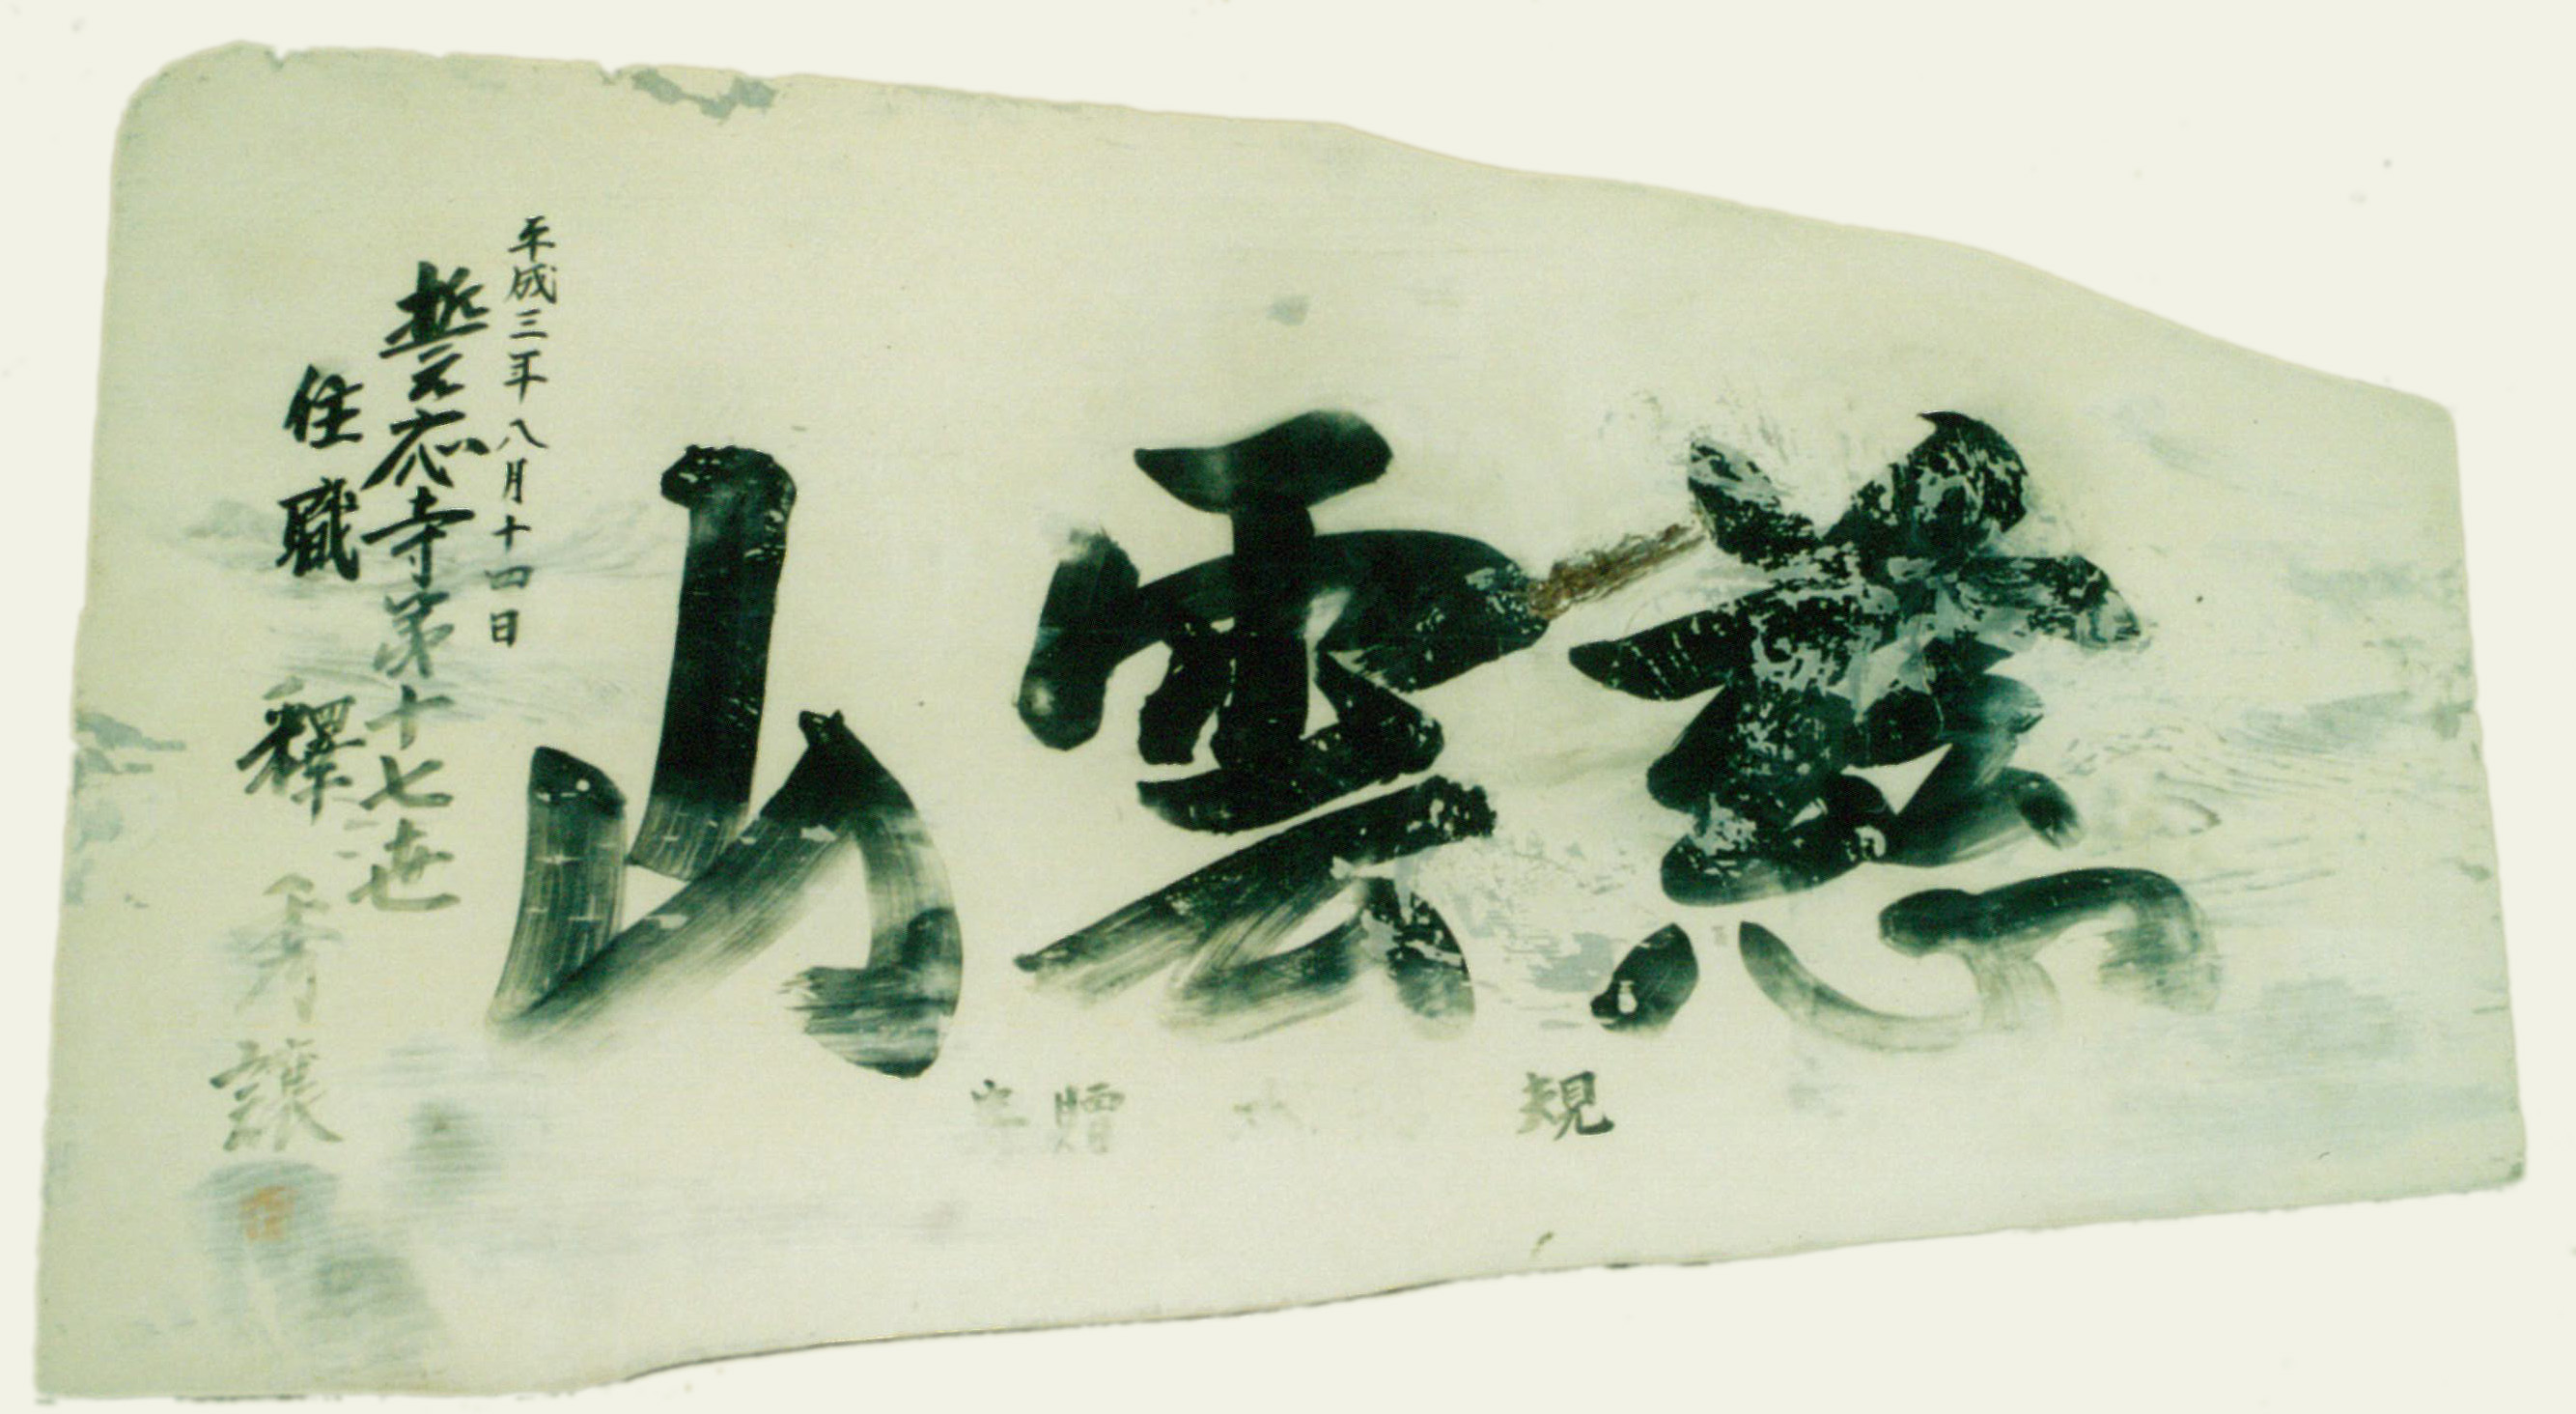 慈雲山
平成三年八月十四日
誓念寺第十七世
住職 釋 秀譲
規
贈